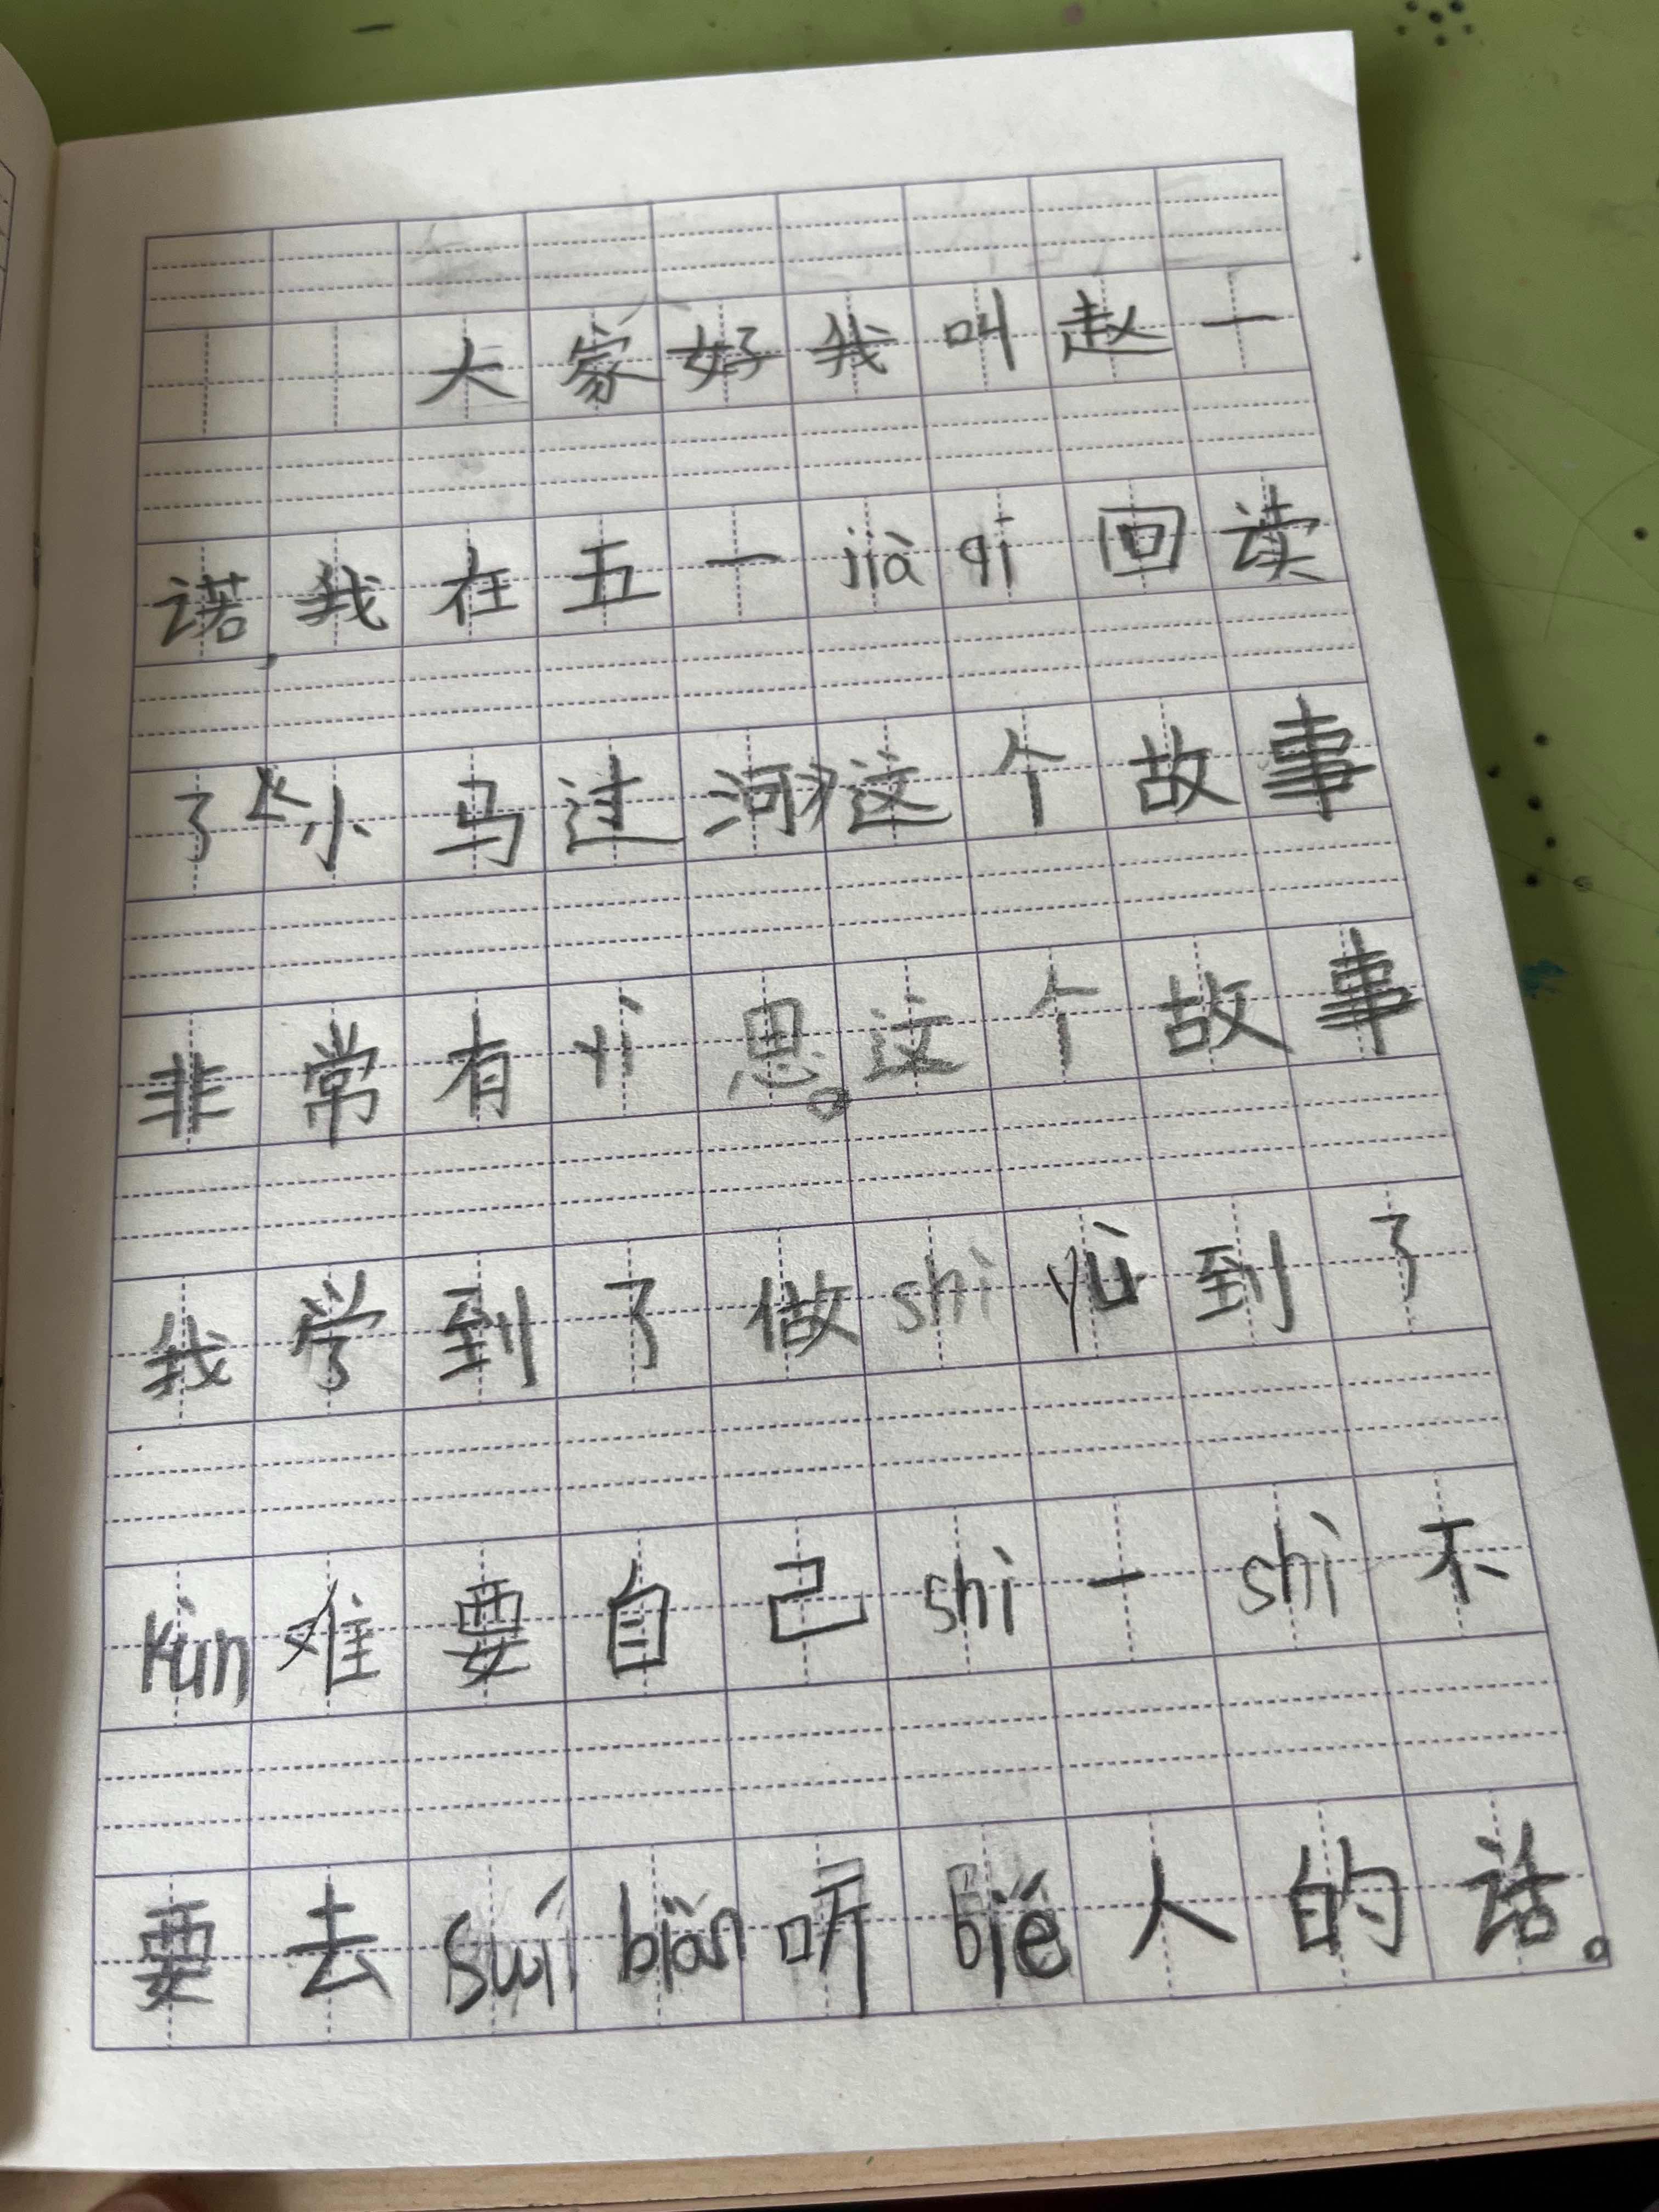 大家好我叫赵一
诺,我在五一jià qi回读
了《小马过河》这个故事
非常有yì思。这个故事
我学到了做shì yù到了
kùn难要自己shì一shì不
要去suí biàn听bié人的话。